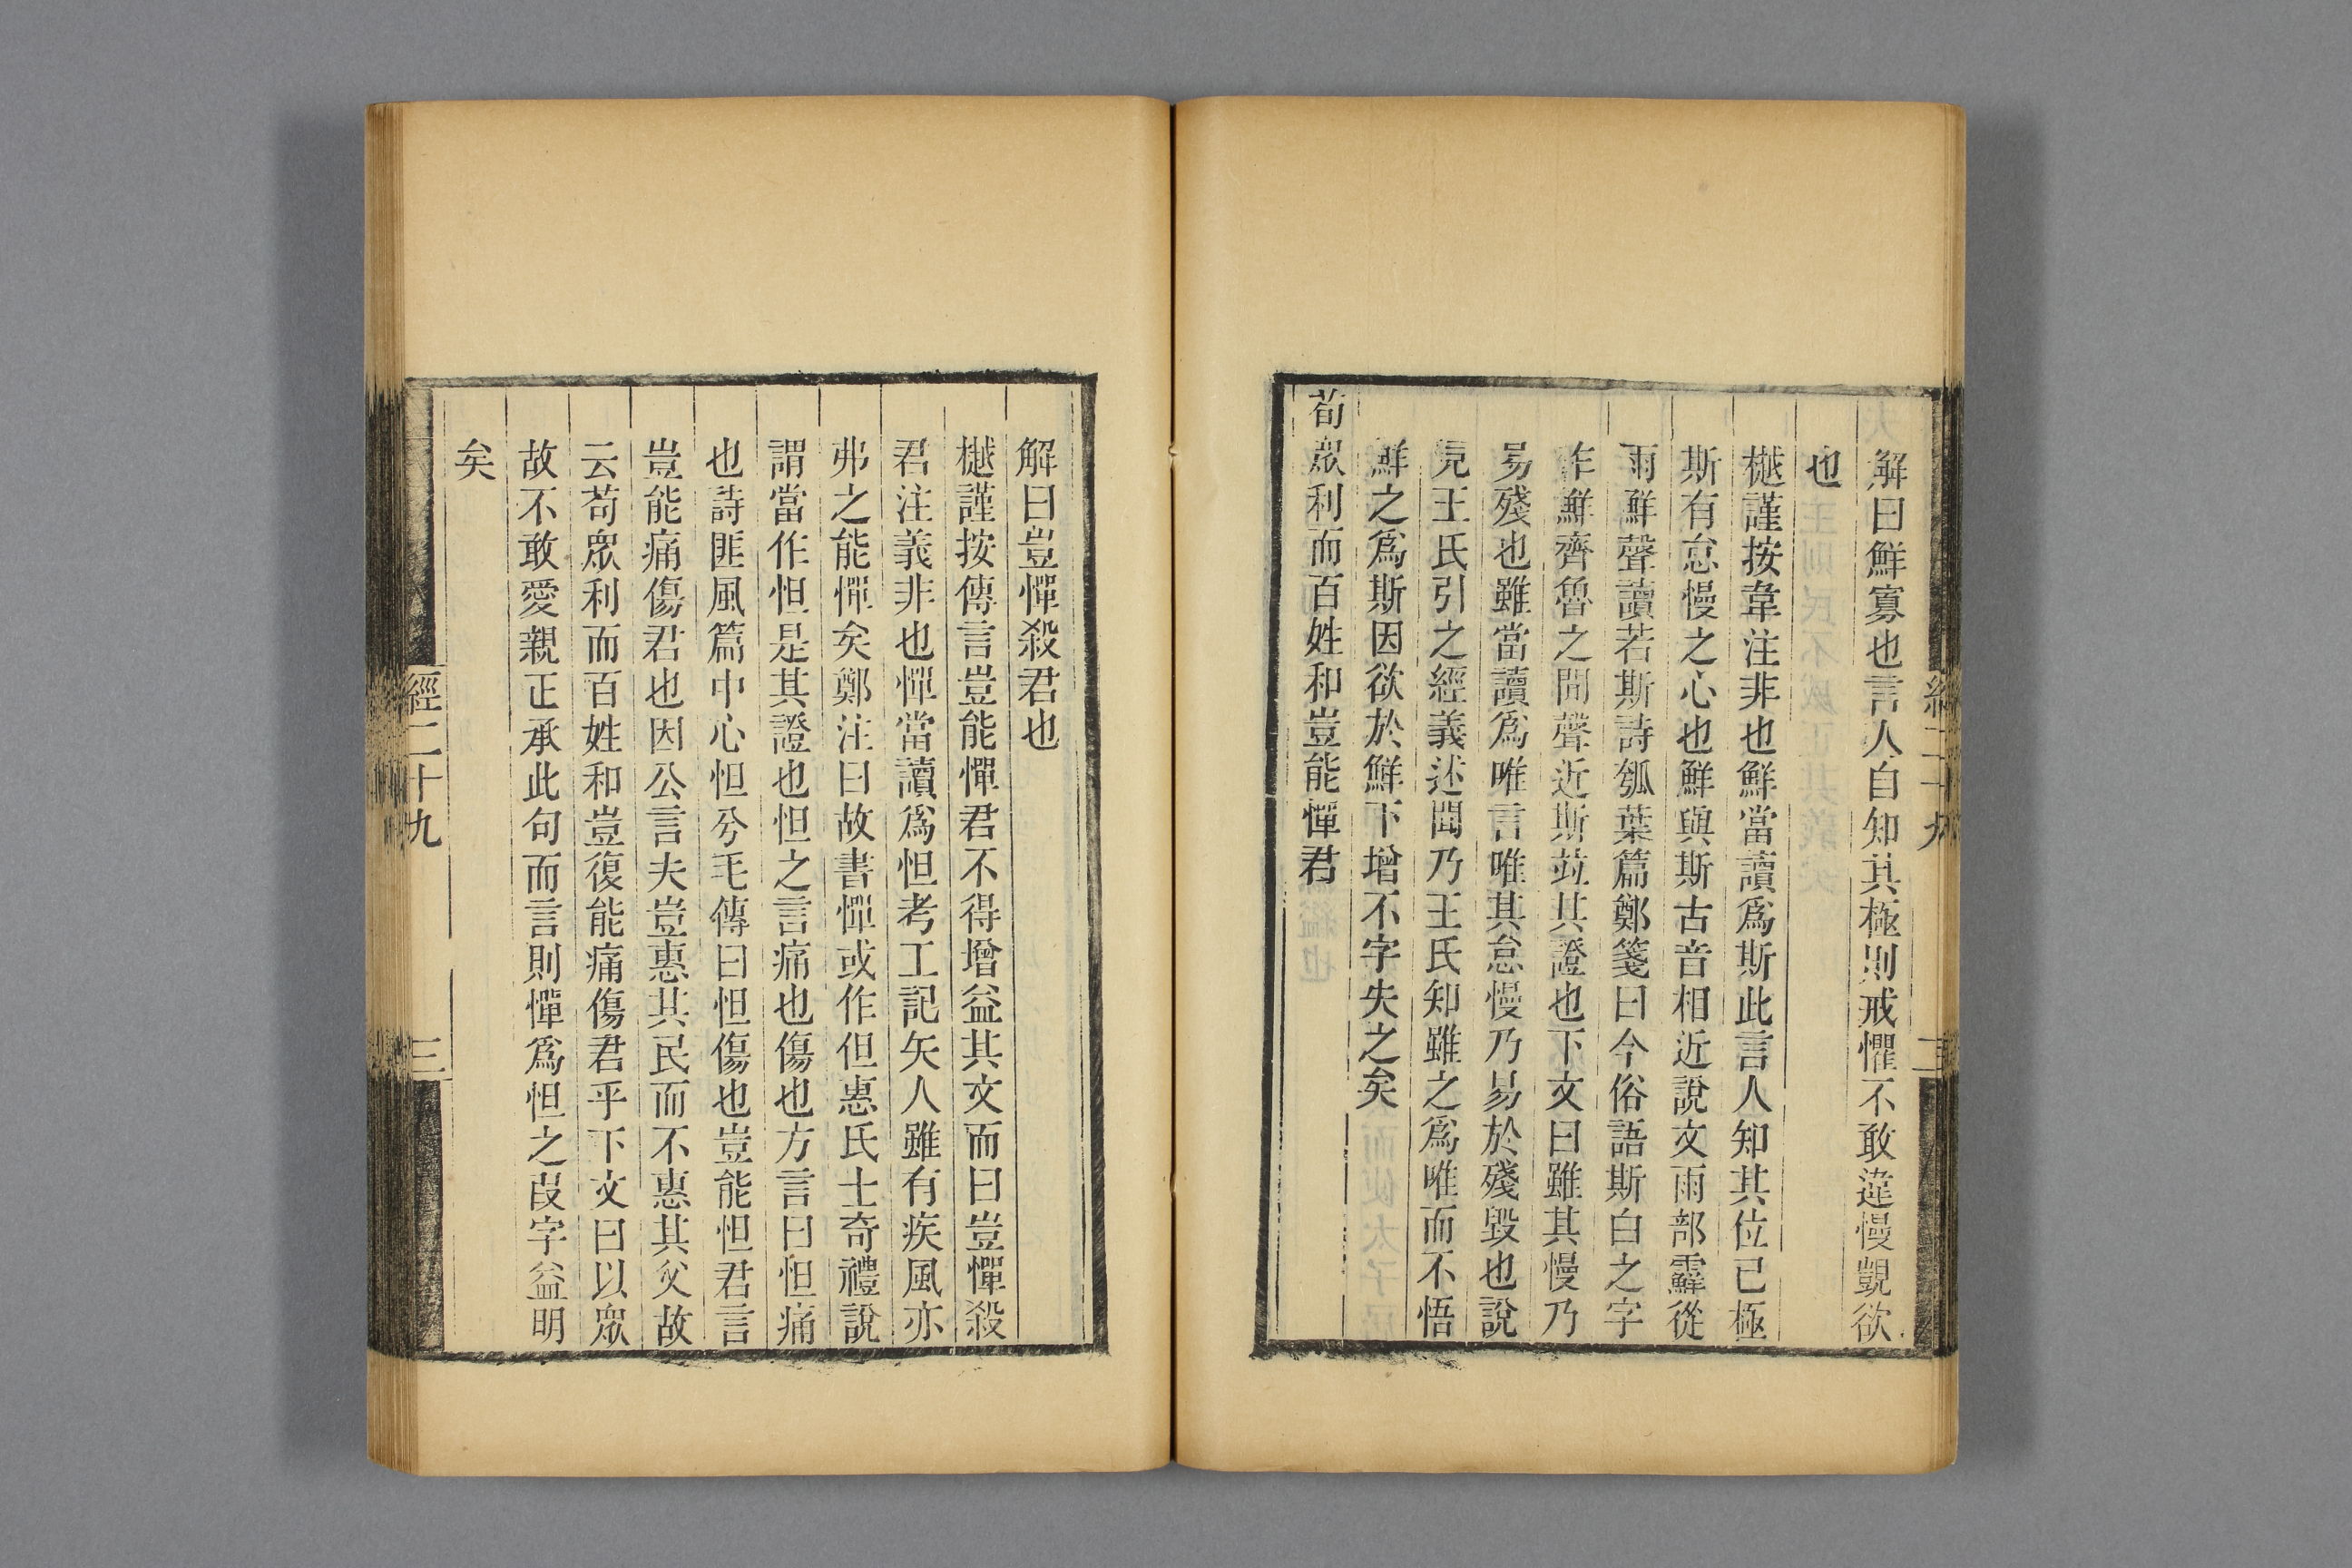 解曰鮮寡也言人自知其極則戒懼不敢違慢覬欲
也
樾謹按韋注非也鮮當讀爲斯此言人知其位己極
斯有怠慢之心也鮮與斯古音相近說文雨部霹從
雨鮮聲讀若斯詩瓠葉篇鄭箋曰今俗語斯白之字
作鮮齊魯之間聲近斯竝其證也下文曰雖其慢乃
易殘也雖當讀爲唯言唯其怠慢乃易於殘毀也說
見王氏引之經義述聞乃王氏知雖之爲唯而不悟
鮮之爲斯因欲於鮮下增不字失之矣
苟眾利而百姓和豈能憚君
解曰豈憚殺君也
樾謹按傳言豈能憚君不得增益其文而曰豈憚殺
君注義非也憚當讀爲怛考工記矢人雖有疾風亦
弗之能憚矣鄭注曰故書憚或作但惠氏士奇禮說
謂當作怛是其證也怛之言痛也傷也方言曰怛痛
也詩匪風篇中心怛兮毛傳曰怛傷也豈能怛君言
豈能痛傷君也因公言夫豈惠其民而不惠其父故
云苟眾利而百姓和豈復能痛傷君乎下文曰以眾
故不敢愛親正承此句而言則憚爲怛之叚字益明
矣
經二十九
三